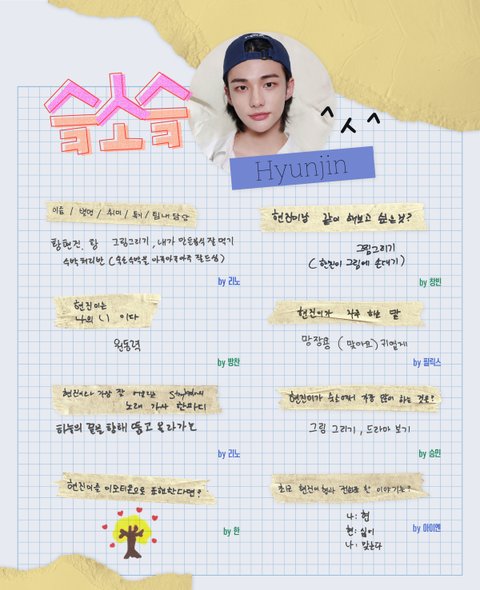 슼소슼
^ㅅ^
Hyunjin
이름 / 별명 / 취미 / 특기 / 팀내 담당
황현진, 황 그림그리기, 내가 만든음식 잘 먹기
수박 처리반
by 리노
현진이랑 같이 해보고 싶은것?
그림그리기
(현진이 그림에 손대기)
by 창빈
현진이는
나의 ( ) 이다
원동력
by 방찬
현진이가 자주 하는 말
망장용 (맞아요) 귀엽게
by 필릭스
현진이와 가장 잘 어울리는 StrayKids의
노래 가사 한마디
하늘의 끝을 향해 뚫고 올라가는
by 리노
현진이가 숙소에서 가장 많이 하는 것은?
그림 그리기, 드라마 보기
by 승민
현진이를 이모티콘으로 표현한다면?
by 한
최근 현진이랑 전화로 한 이야기는?
나: 형
현: 싫어
나: 맞는다
by 아이엔